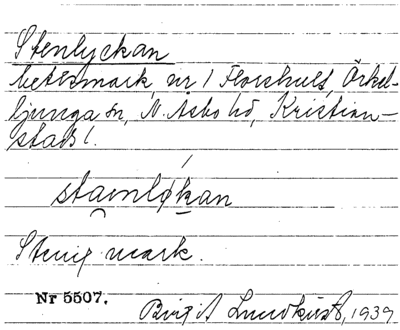 Stenlyckan
betesmark nr 1 Florshult, Örkel-
ljunga sn, N. Åsbo hd, Kristian-
stads l.
stai̯nlø̜kan
Stenig mark.
Nr 5507.
Birgit Lundkvist, 1939